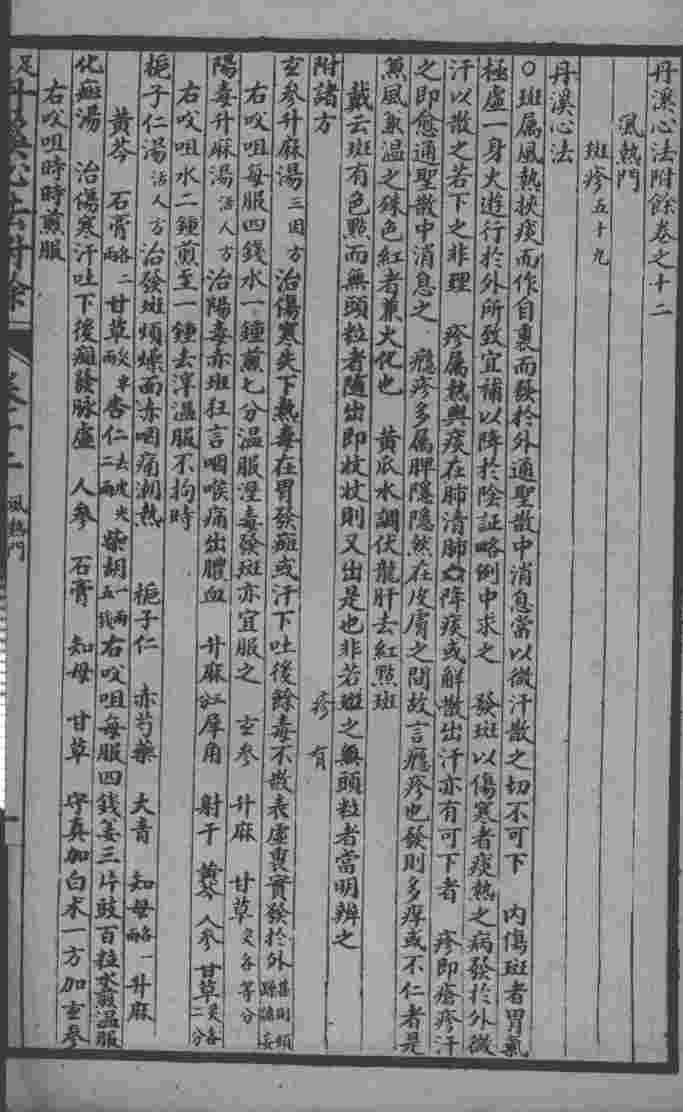 丹溪心法附餘卷之十二
風熱門
斑疹五十九
丹溪心法
○斑属風熱挾痰而作自裏而發於外通聖散中消息當以微汗散之切不可下　内傷斑者胃氣
極虛一身火遊行於外所致宜補以降於陰証略例中求之　發斑以傷寒者痰熱之病發於外微
汗以散之若下之非理　疹属熱與痰在肺清肺火降痰或解散出汗亦有可下者　疹即瘡疹汗
之即愈通聖散中消息之　癮疹多属脾隱隱然在皮膚之間故言癮疹也發則多痒或不仁者是
兼風兼溫之殊色紅者兼火化也　黄瓜水調伏龍肝去紅點斑
戴云斑有色點而無頭粒者隨出即拔拔則又出是也非若斑之無頭粒者當明辨之
疹有
附諸方
玄參升麻湯三因方治傷寒失下熱毒在胃發斑或汗下吐後餘毒不散表虛裏實發於外甚則煩躁譫妄
右㕮咀每服四錢水一鐘煎七分温服溼毒發斑亦宜服之　玄參　升麻　甘草炙各等分
陽毒升麻湯活人方治陽毒赤斑狂言咽喉痛出膿血　升麻　犀角　射干　黄芩　人參　甘草炙各二分
右㕮咀水二鐘煎至一鐘去滓温服不拘時
梔子仁湯活人方治發斑煩燥面赤咽痛潮熱　梔子仁　赤芍藥　大青　知母各一兩　升麻
黄芩　石膏各二兩　甘草炙半兩　杏仁二兩去皮尖　柴胡一兩五錢右㕮咀每服四錢姜三片豉百粒水煎温服
化斑湯　治傷寒汗吐下後斑發脉虛　人參　石膏　知母　甘草　守真加白术一方加玄參
右㕮咀時時煎服
足丹溪心法附餘　卷十二　風熱門